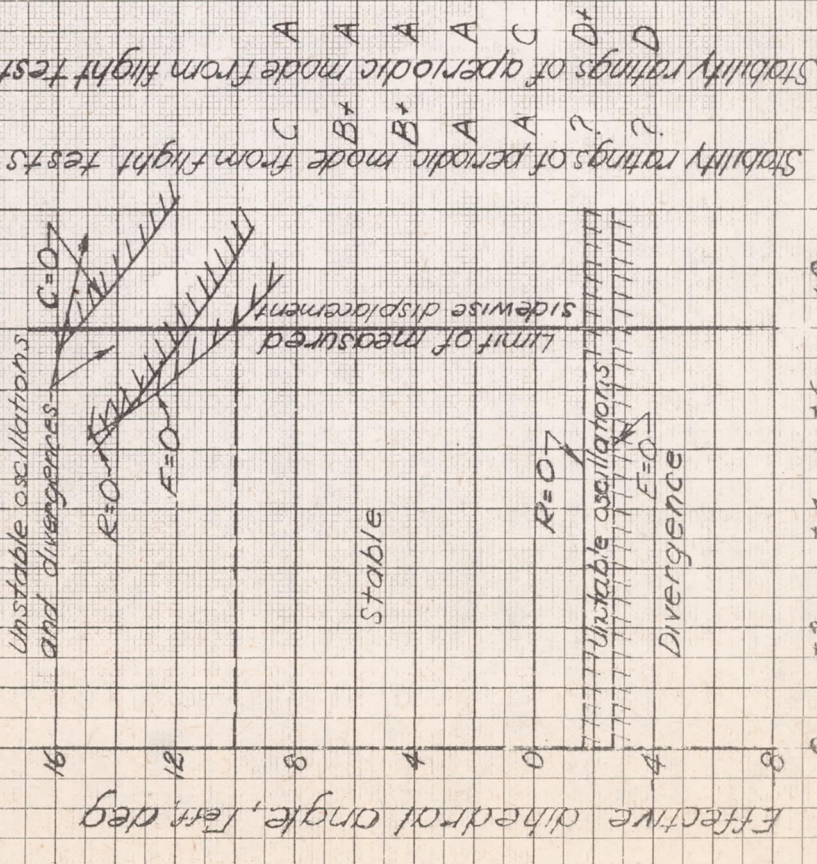 Stability ratings of aperiodic mode from flight test
A A A A C D+ D
Stability ratings of periodic mode from flight tests
C B+ B+ A A ? ?
Unstable oscillations
and divergences
C=0
R=0
E=0
Limit of measured
sidewise displacement
Stable
R=0
Unstable oscillations
E=0
Divergence
16 12 8 4 0 -4 8
Effective dihedral angle, Γeff, deg